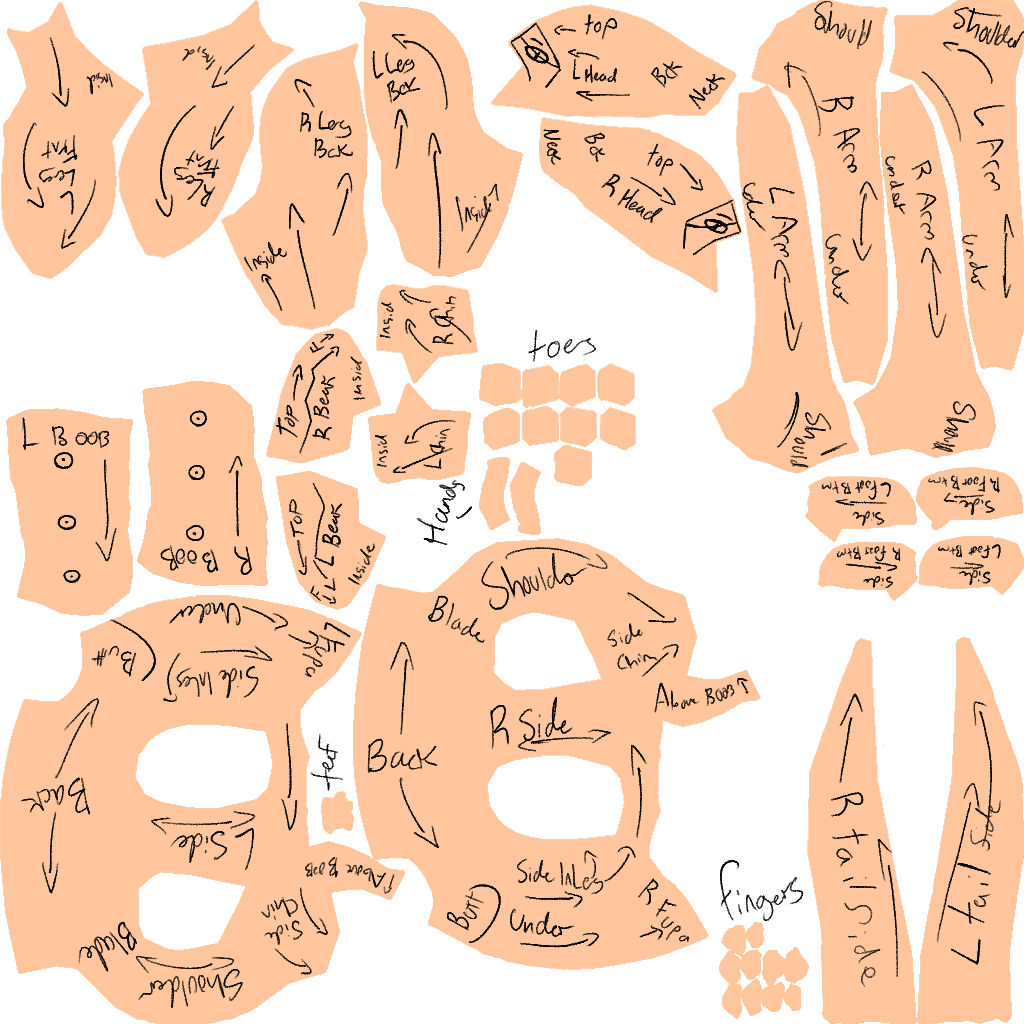 Insid
L
Leg
Frnt
Insid
R
Leg
Frnt
R Leg
Bck
Inside
L Leg
Bck
Inside
top
L Head
Bck
Neck
Neck
Bck
top
R Head
Should
R Arm
under
Shoulder
L Arm
under
L Arm
under
Should
R Arm
under
Should
Insid
R Chin
Insid
L Chin
TOP
R Beak
Inside
TOP
L Beak
Inside
toes
Hands
L BOOB
R BOOB
L Foot Btm
Side
R Foot Btm
Side
R Foot Btm
Side
L Foot Btm
Side
Under
L Fupa
Butt
Side InLeg
Back
L Side
Above BOOB
Side
Chin
Blade
Shoulder
feet
Shoulder
Blade
Side
Chin
Above BOOB
R Side
Back
Side InLeg
Butt
Under
R Fupa
fingers
R tail Side
L tail Side